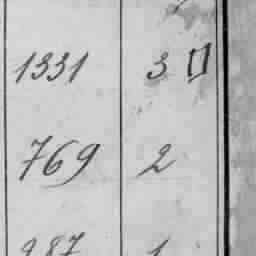 1331 3
769 2
287 1